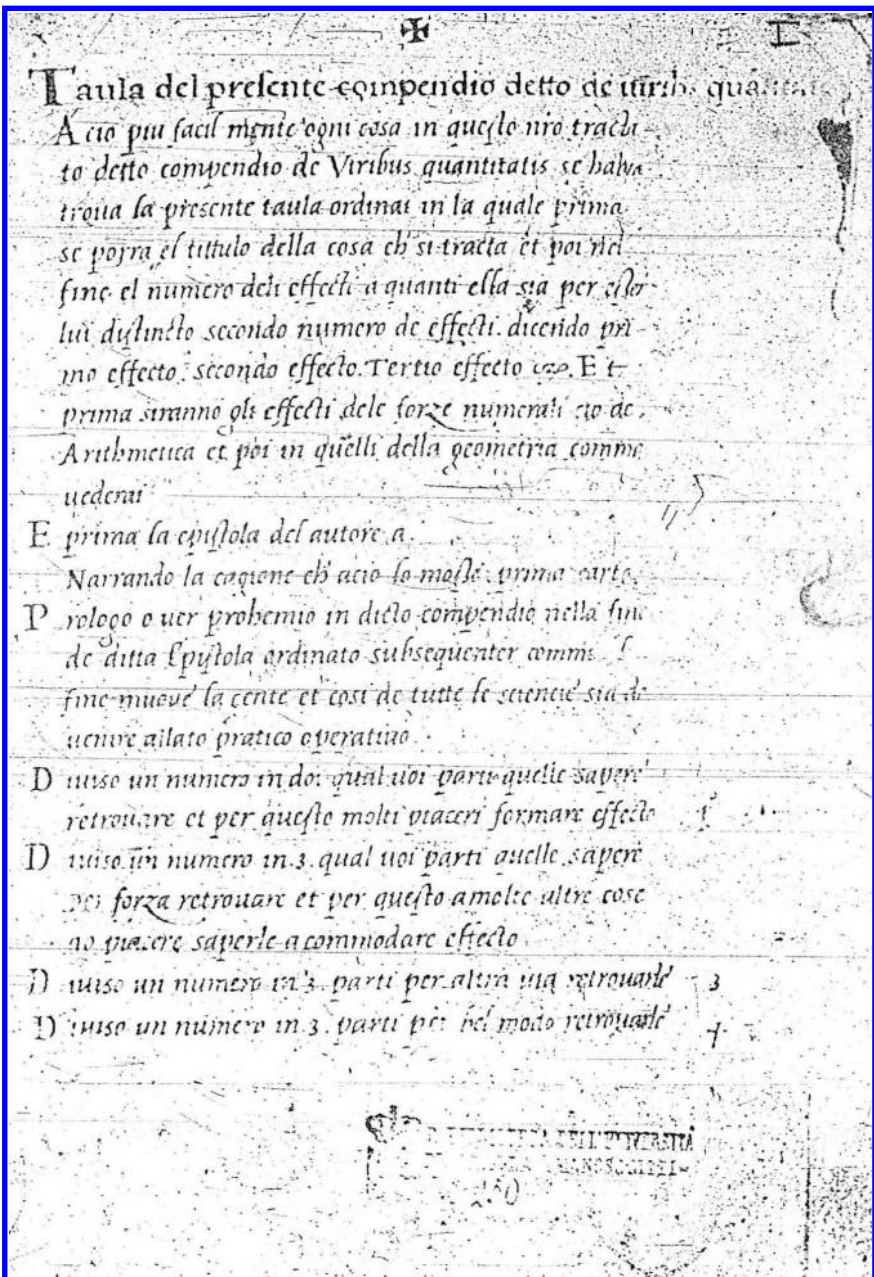 ✠ I
Taula del presente compendio detto de uirib. quantit
A cio piu facil mente ogni cosa in questo nro tracta-
to detto compendio de Viribus quantitatis se habia
troua la presente taula ordinai in la quale prima
se porra el tittulo della cosa ch' si tracta et poi nel
fine el numero deli effecti a quanti ella sia per esser
lui distincto secondo numero de effecti. dicendo pri-
mo effecto. secondo effecto. Tertio effecto Et
prima siranno gli effecti dele forze numerali cio de
Arithmetica et poi in quelli della geometria comme
uederai
E prima la epistola del autore a.
Narrando la cagione ch' acio lo mosse. prima carta.
P rologo o uer prohemio in dicto compendio nella fine
de ditta Epistola ordinato subsequenter comme
fine muove la gente et cosi de tutte le sciencie sia de
uenire allato pratico operatiuo.
D iuiso un numero in doi qual uoi parti quelle sapere
retrouare et per questo molti piaceri formare effecto 1
D iuiso un numero in 3. qual uoi parti quelle sapere
per forza retrouare et per questo a molte altre cose
piacere saperle acommodare effecto
D iuiso un numero in 3. parti per altra uia retrouarle 3
D iuiso un numero in 3. parti per bel modo retrouarle 4
DELL'UNIVERSITA
250